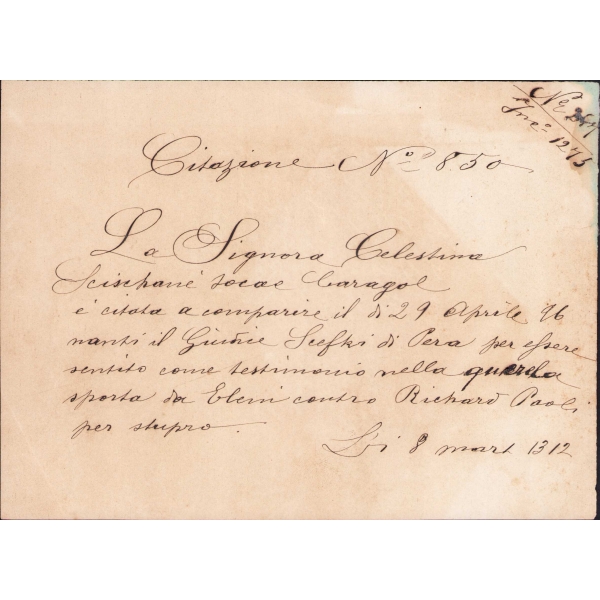 No 257
Ine. 1275
Citazione No 850
La Signora Celestina
Scischané socac Caragol
é citata a comparire il di 29 Aprile 96
nanti il Giudice Scefki di Pera per essere
sentito come testimonio nella querela
sporta da Eleni contro Richard Paoli
per stupro.
Li 8 mart 1312